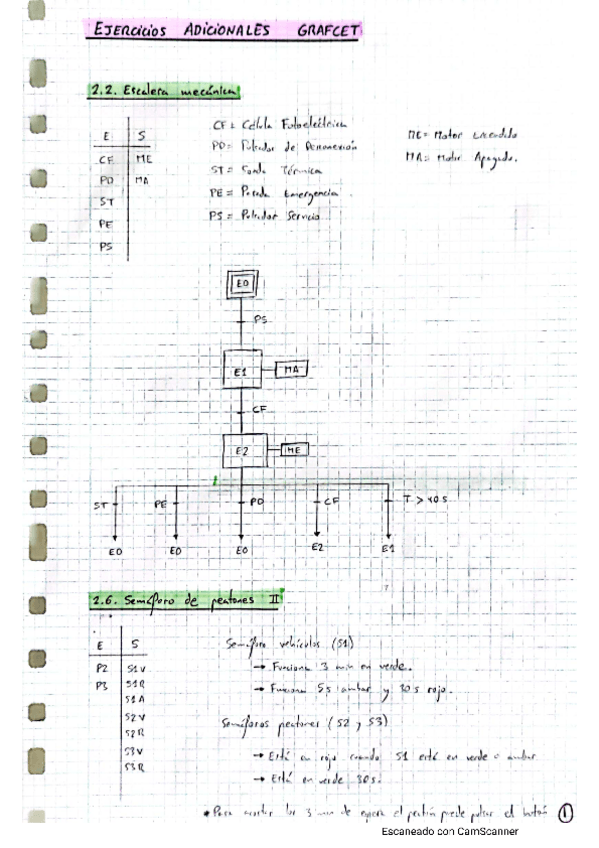 EJERCICIOS ADICIONALES GRAFCET
2.2. Escalera mecánica
E S
CF ME
PD MA
ST
PE
PS
CF = Célula Fotoeléctrica
PD = Pulsador de Desconexión
ST = Sonda Térmica
PE = Parada Emergencia.
PS = Pulsador Servicio
ME = Motor Encendido
MA = Motor Apagado.
E0
PS
E1 MA
CF
E2 ME
ST PE PD CF T > 40 s
E0 E0 E0 E2 E1
2.6. Semáforo de peatones II
E S
P2 S1V
P3 S1R
S1A
S2V
S2R
S3V
S3R
Semáforo vehículos (S1)
→ Funciona 3 min en verde.
→ Funciona 5s ambar y 30s rojo.
Semáforos peatones (S2 y S3)
→ Está en rojo cuando S1 esté en verde o ambar
→ Está en verde 30s.
* Para acortar los 3 min de espera el peatón puede pulsar el botón 1
Escaneado con CamScanner